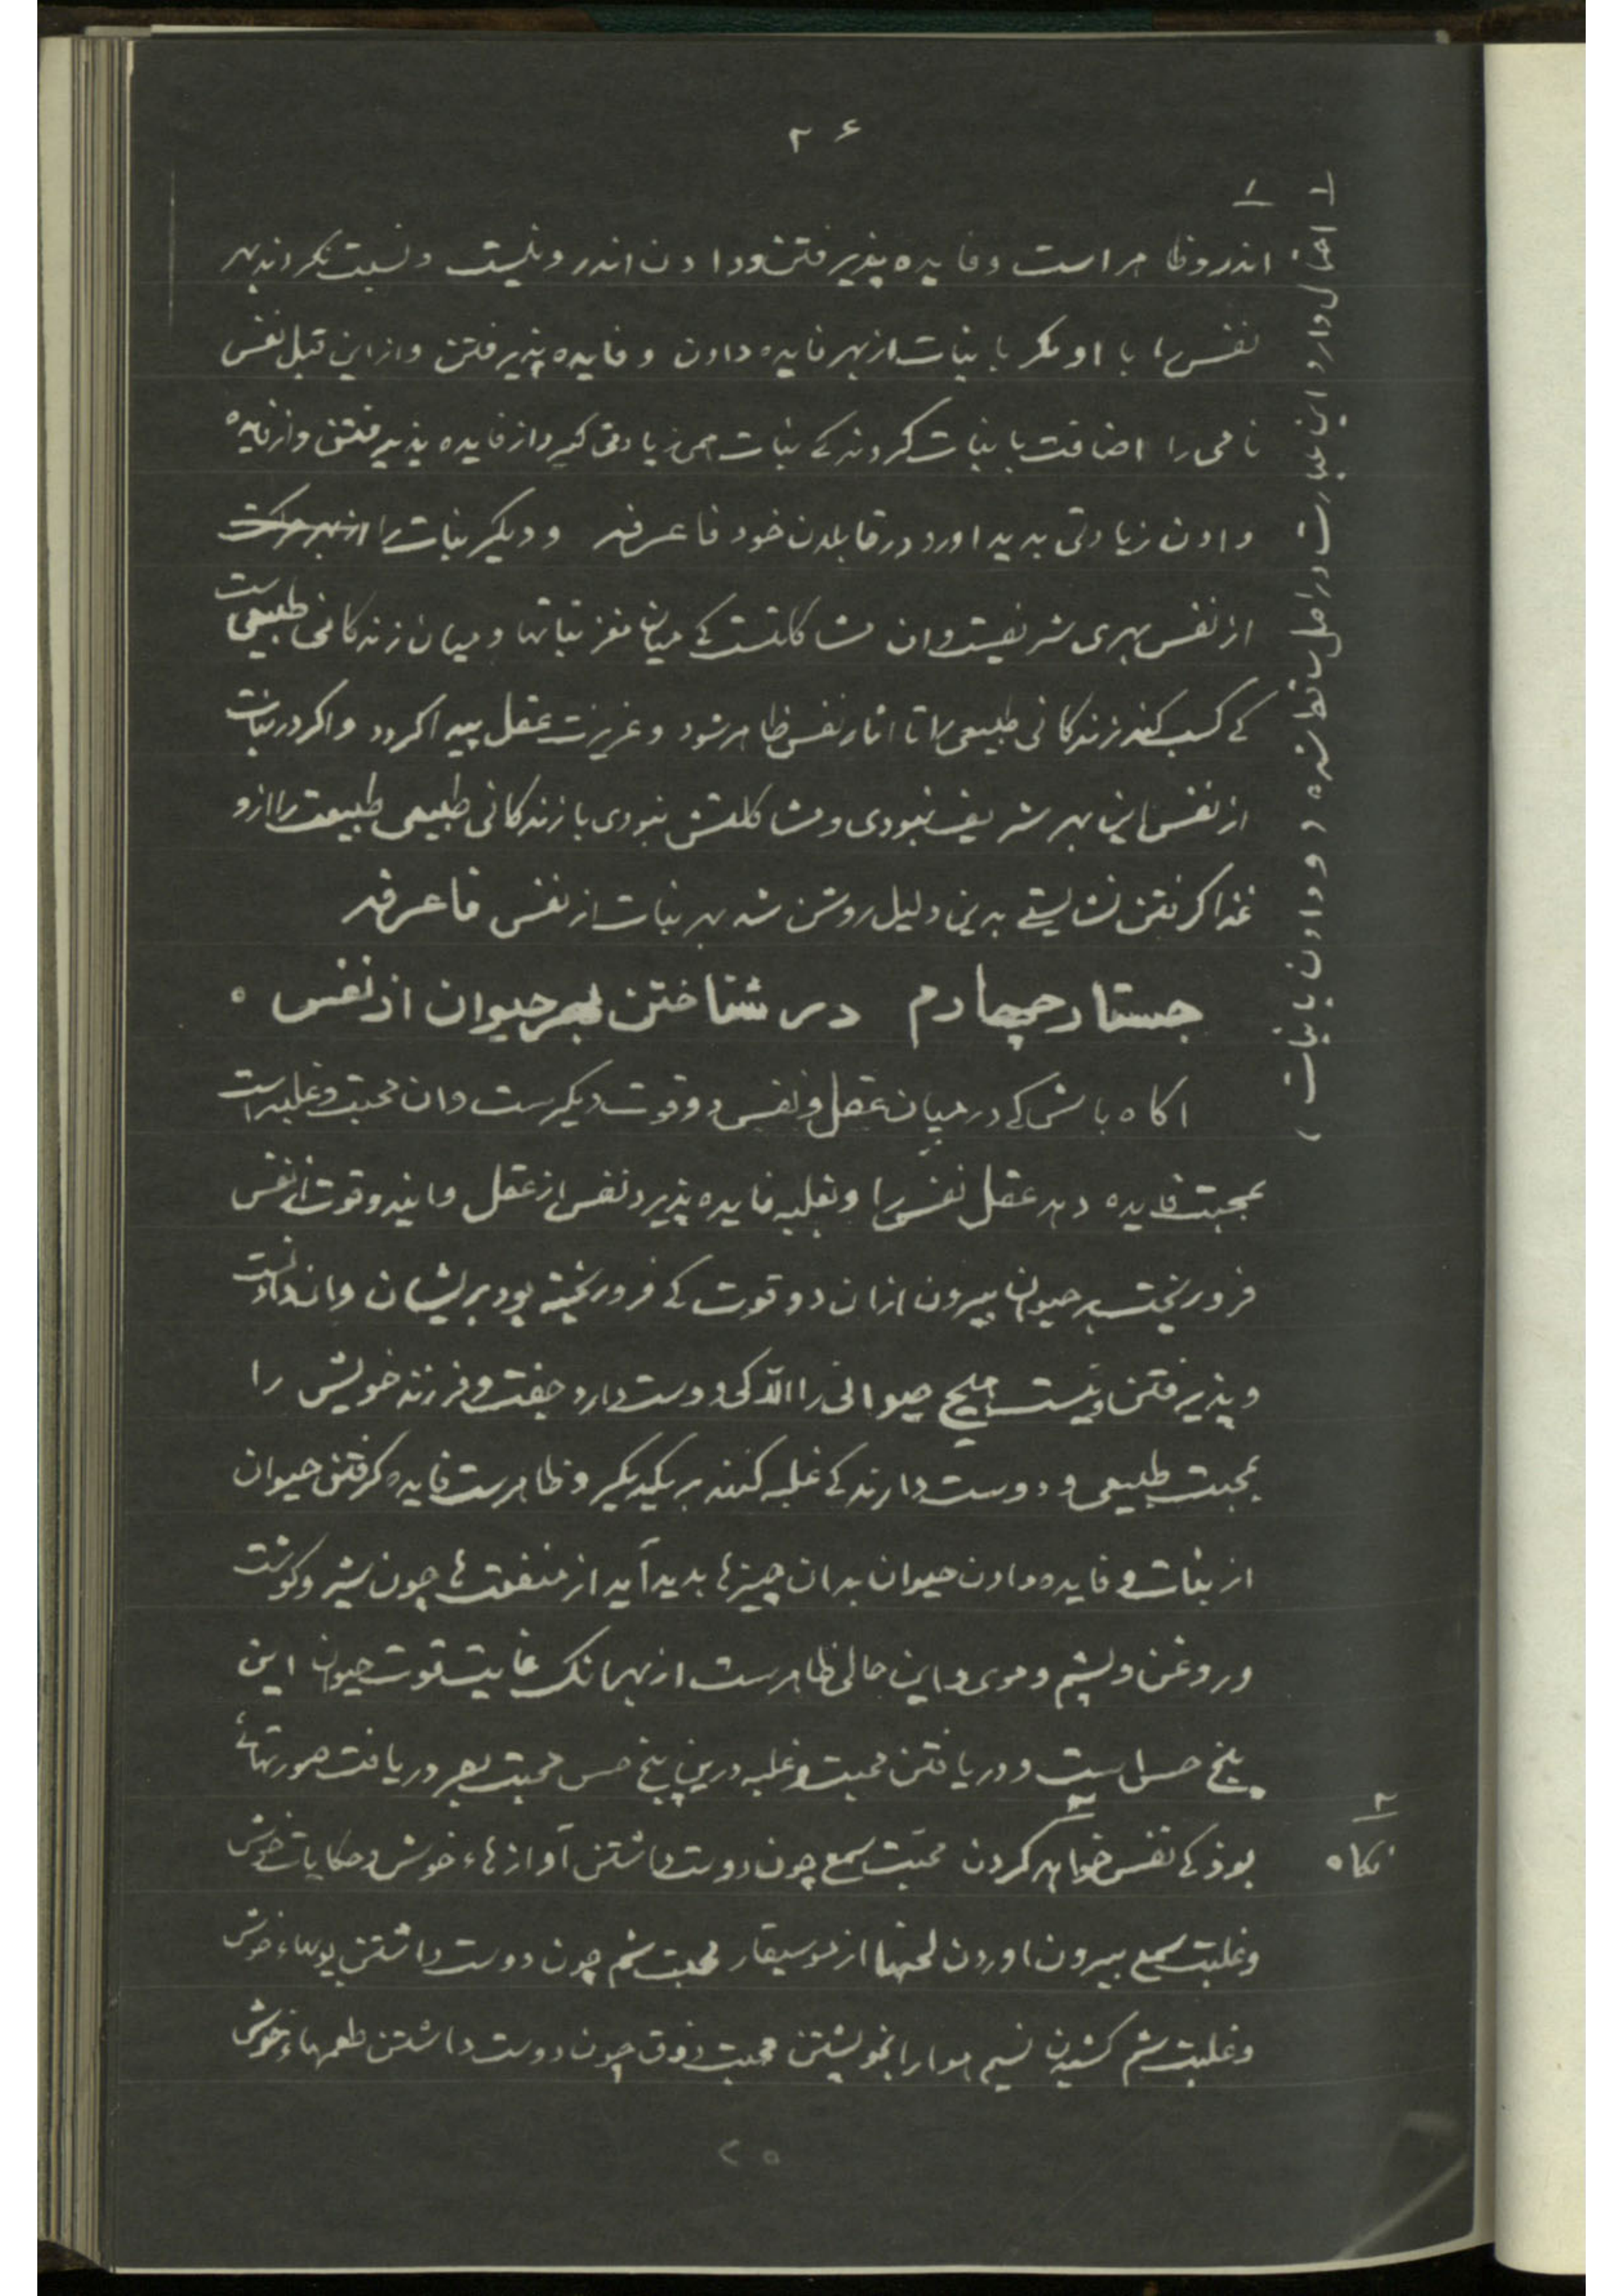 ۲۶
۱
اندرو ظاهر است و فایده پذیرفتن و دادن اندرو نیست و نسبت نکردند بهر
نفس را با او مکر با نبات از بهر فایده دادن و فایده پذیرفتن و از این قبل نفس
نامی را اضافت با نبات کردند کے نبات همی زیادتی کیرد از فایده پذیرفتن و از فایده
دادن زیادتی بدید اورد در قابلدن خود فاعرفه و دیکر نبات را از بهر حرکت
از نفس بهری شریفیست و ان مشاکلتست کے میان مغز نباتها و میان زندکانی طبیعی است
کے کسب کند زندکانی طبیعی را تا اثار نفس ظاهر شود و غریزت عقل پیدا کردد و اکر در نبات
از نفس این بهر شریف نبودی و مشاکلتش نبودی با زندکانی طبیعی طبیعت را ازو
غذا کرفتن نشایستے بدین دلیل روشن شد بهر نبات از نفس فاعرفه
جستار چهارم در شناختن بهر حیوان از نفس ○
اکاه باش کے در میان عقل و نفس دو قوت دیکرست و ان محبت و غلبه است
بمحبت فایده دهد عقل نفس را و بغلبه فایده پذیرد نفس از عقل و ایند و قوت از نفس
فروریخت بر حیوان بیرون ازان دو قوت کے فروریخته بود بریشان و ان دادنست
و پذیرفتن و نیست هیچ حیوانی را الا کی دوست دارد جفت و فرزند خویش را
بمحبت طبیعی و دوست دارند کے غلبه کنند بر یکدیکر و ظاهرست فایده کرفتن حیوان
از نبات و فایده دادن حیوان بدان چیزها بدید آمد از منفعتها چون شیر و کوشت
و روغن و پشم و موی و این حالی ظاهرست از بهرانک غایت قوت حیوان این
پنج حس است و دریافتن محبت و غلبه درین پنج حس محبت بصر دریافت صورتهائے
بوذ کے نفس خواهد کردن ۲ محبّت سمع چون دوست داشتن آوازهاء خوش و حکایات خوش
و غلبت سمع بیرون اوردن لحنها از موسیقار محبت شم چون دوست داشتن بویهاء خوش
و غلبت شم کشیدن نسیم هوا را بخویشتن محبت ذوق چون دوست داشتن طعمهاء خوش
۱ احتمال دارد این عبارت در اصل ساقط شده ( و دادن با نبات )
۲
نکاه
۲۵